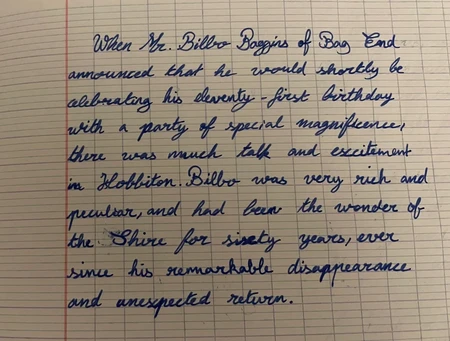 When Mr. Bilbo Baggins of Bag End
announced that he would shortly be
celebrating his eleventy-first birthday
with a party of special magnificence,
there was much talk and excitement
in Hobbiton. Bilbo was very rich and
peculiar, and had been the wonder of
the Shire for sixty years, ever
since his remarkable disappearance
and unexpected return.